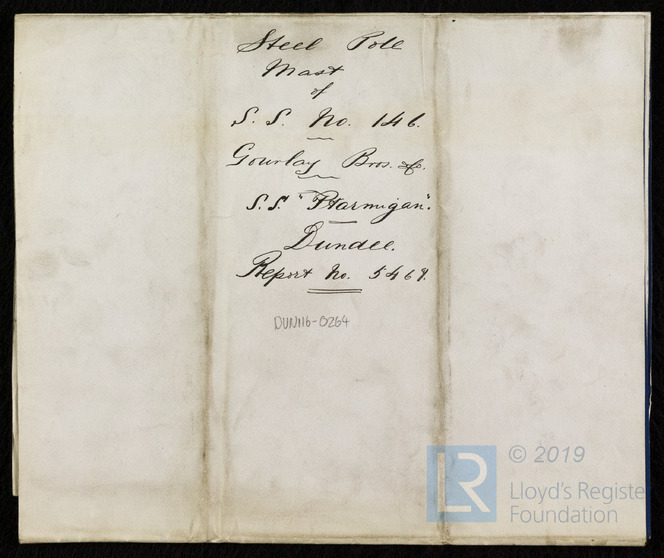 Steel Pole
Mast
of
S. S. No. 146.
Gourlay Bros. & Co.
S.S. "Ptarmigan".
Dundee.
Report No. 5469.
DUN116-0264
LR
© 2019
Lloyd's Registe
Foundation